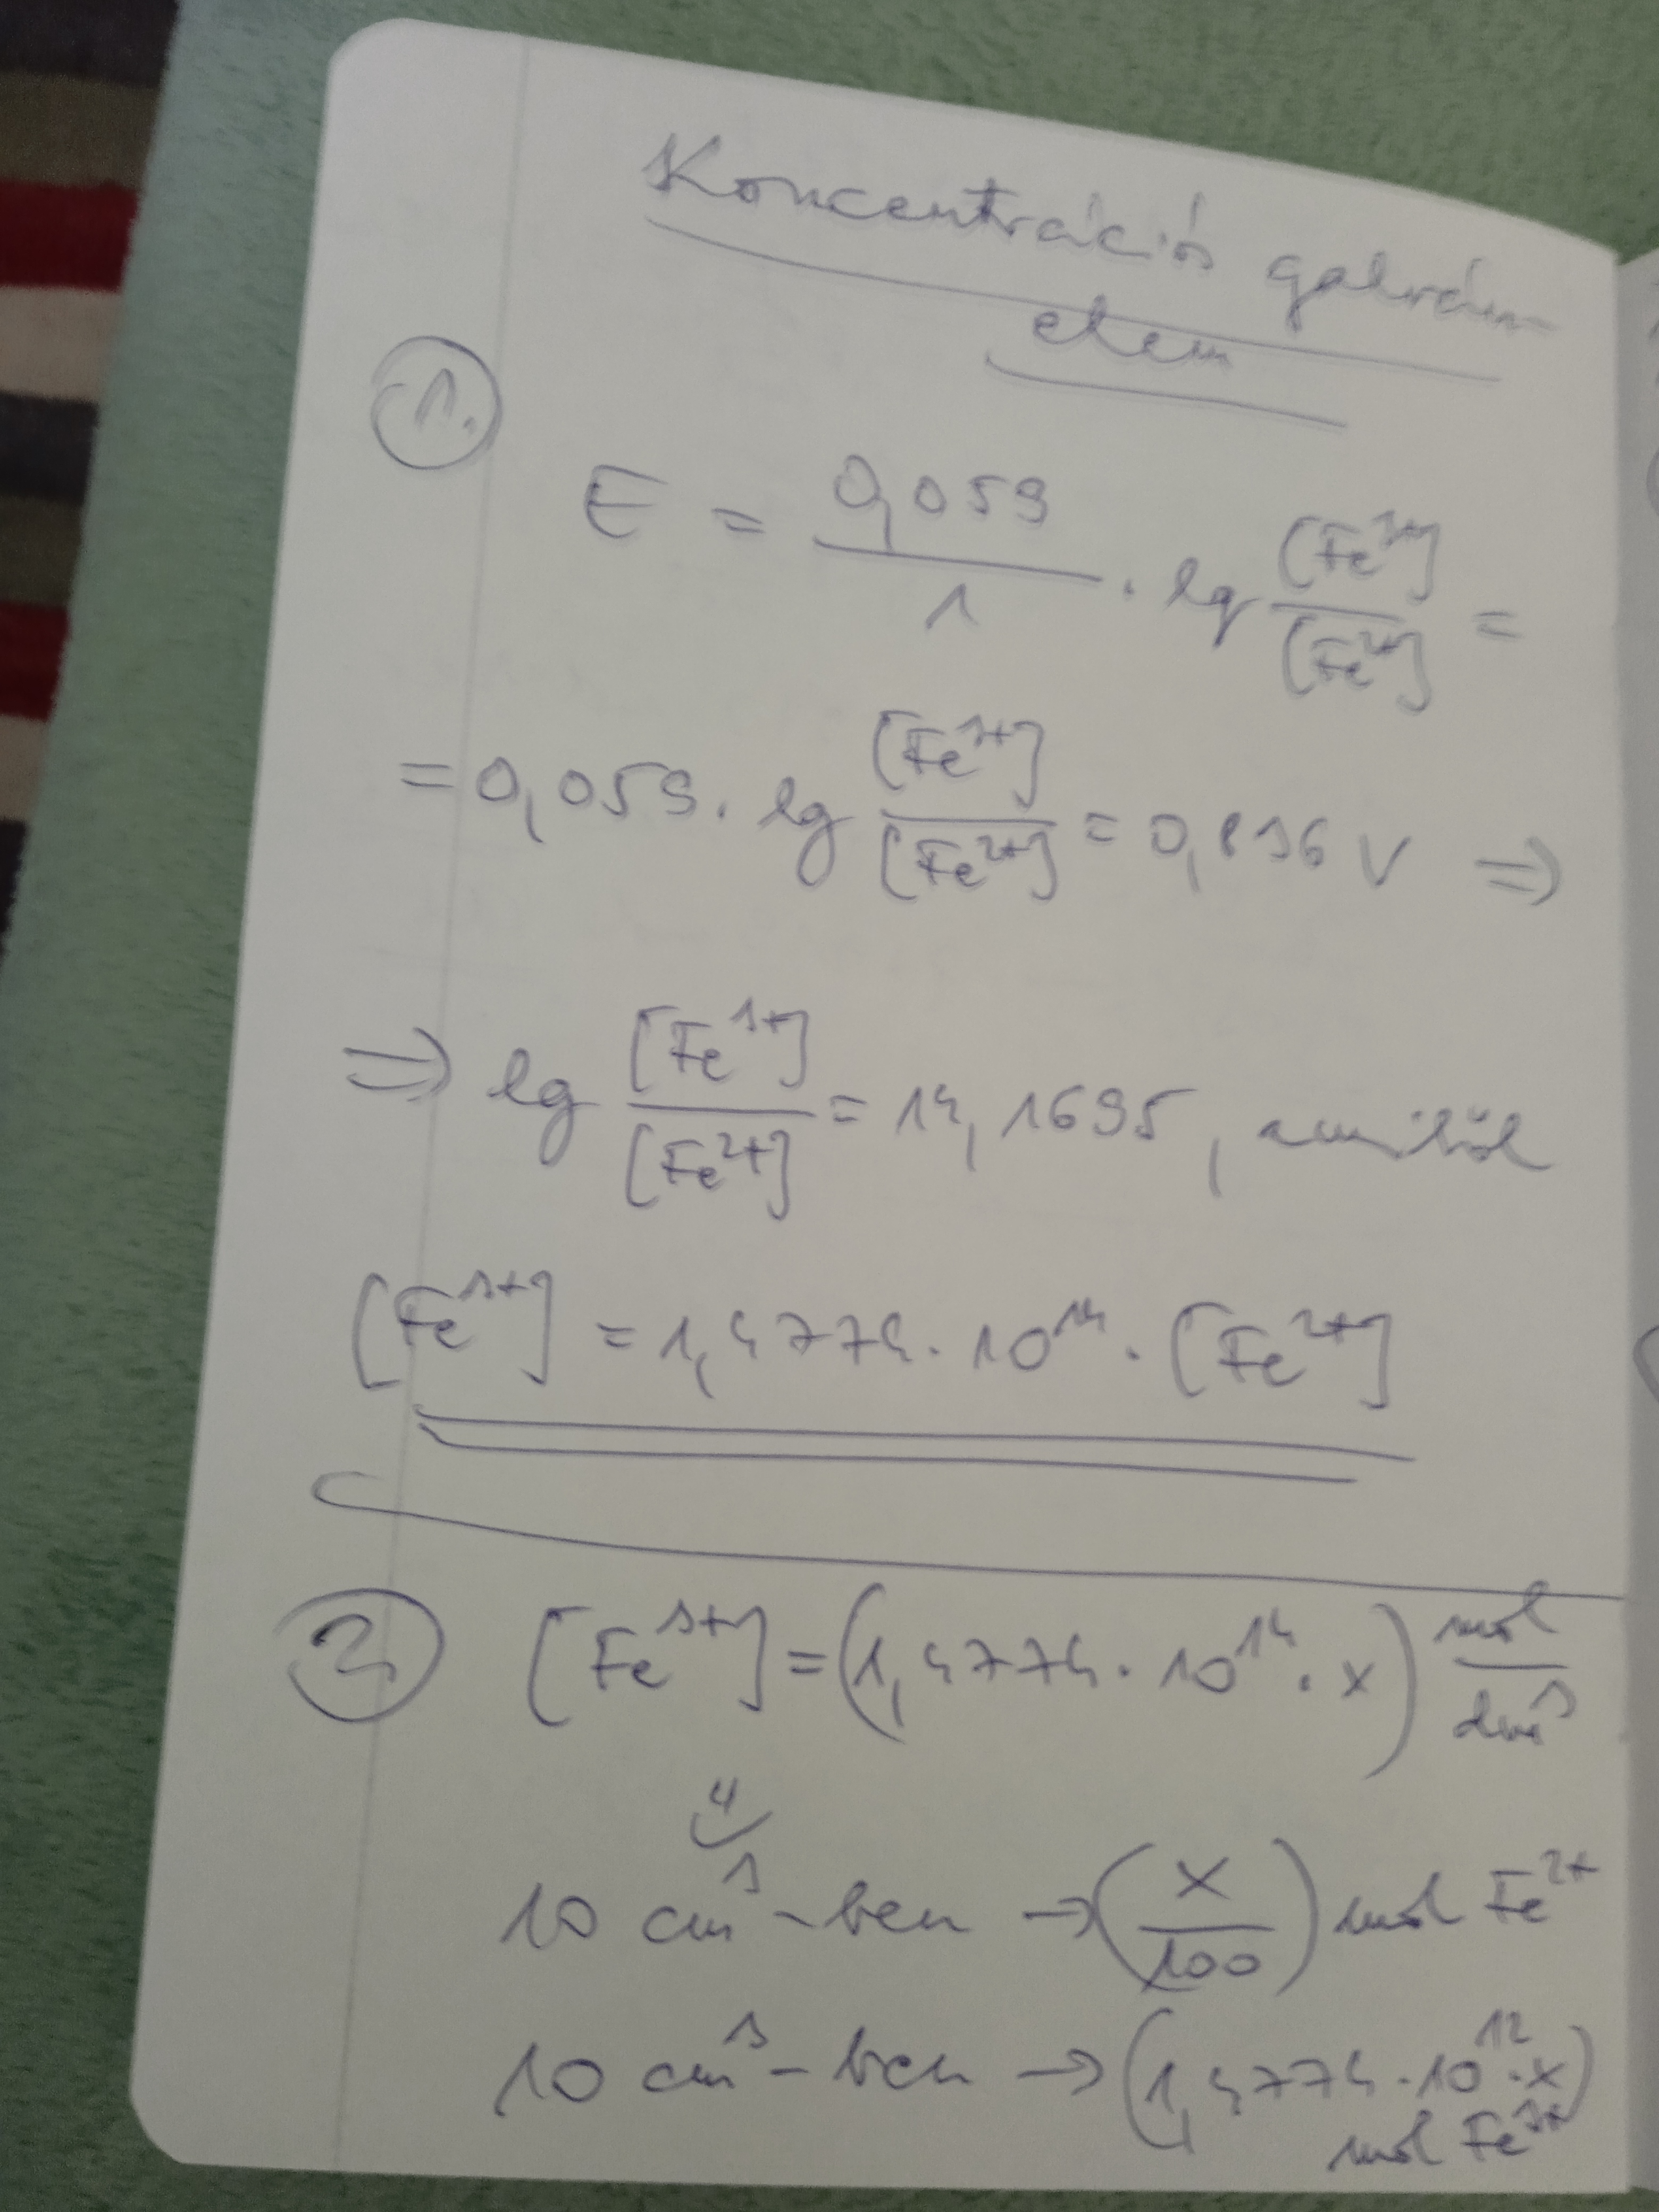 Koncentrációs galván-
elem
1.
E = 0,059 / 1 · lg [Fe³⁺] / [Fe²⁺] =
= 0,059 · lg [Fe³⁺] / [Fe²⁺] = 0,836 V ⇒
⇒ lg [Fe³⁺] / [Fe²⁺] = 14,1695, amiből
[Fe³⁺] = 1,4774 · 10¹⁴ · [Fe²⁺]
2. [Fe³⁺] = (1,4774 · 10¹⁴ · x) mol / dm³
⇓
10 cm³-ben → (x / 100) mol Fe²⁺
10 cm³-ben → (1,4774 · 10¹² · x)
mol Fe³⁺